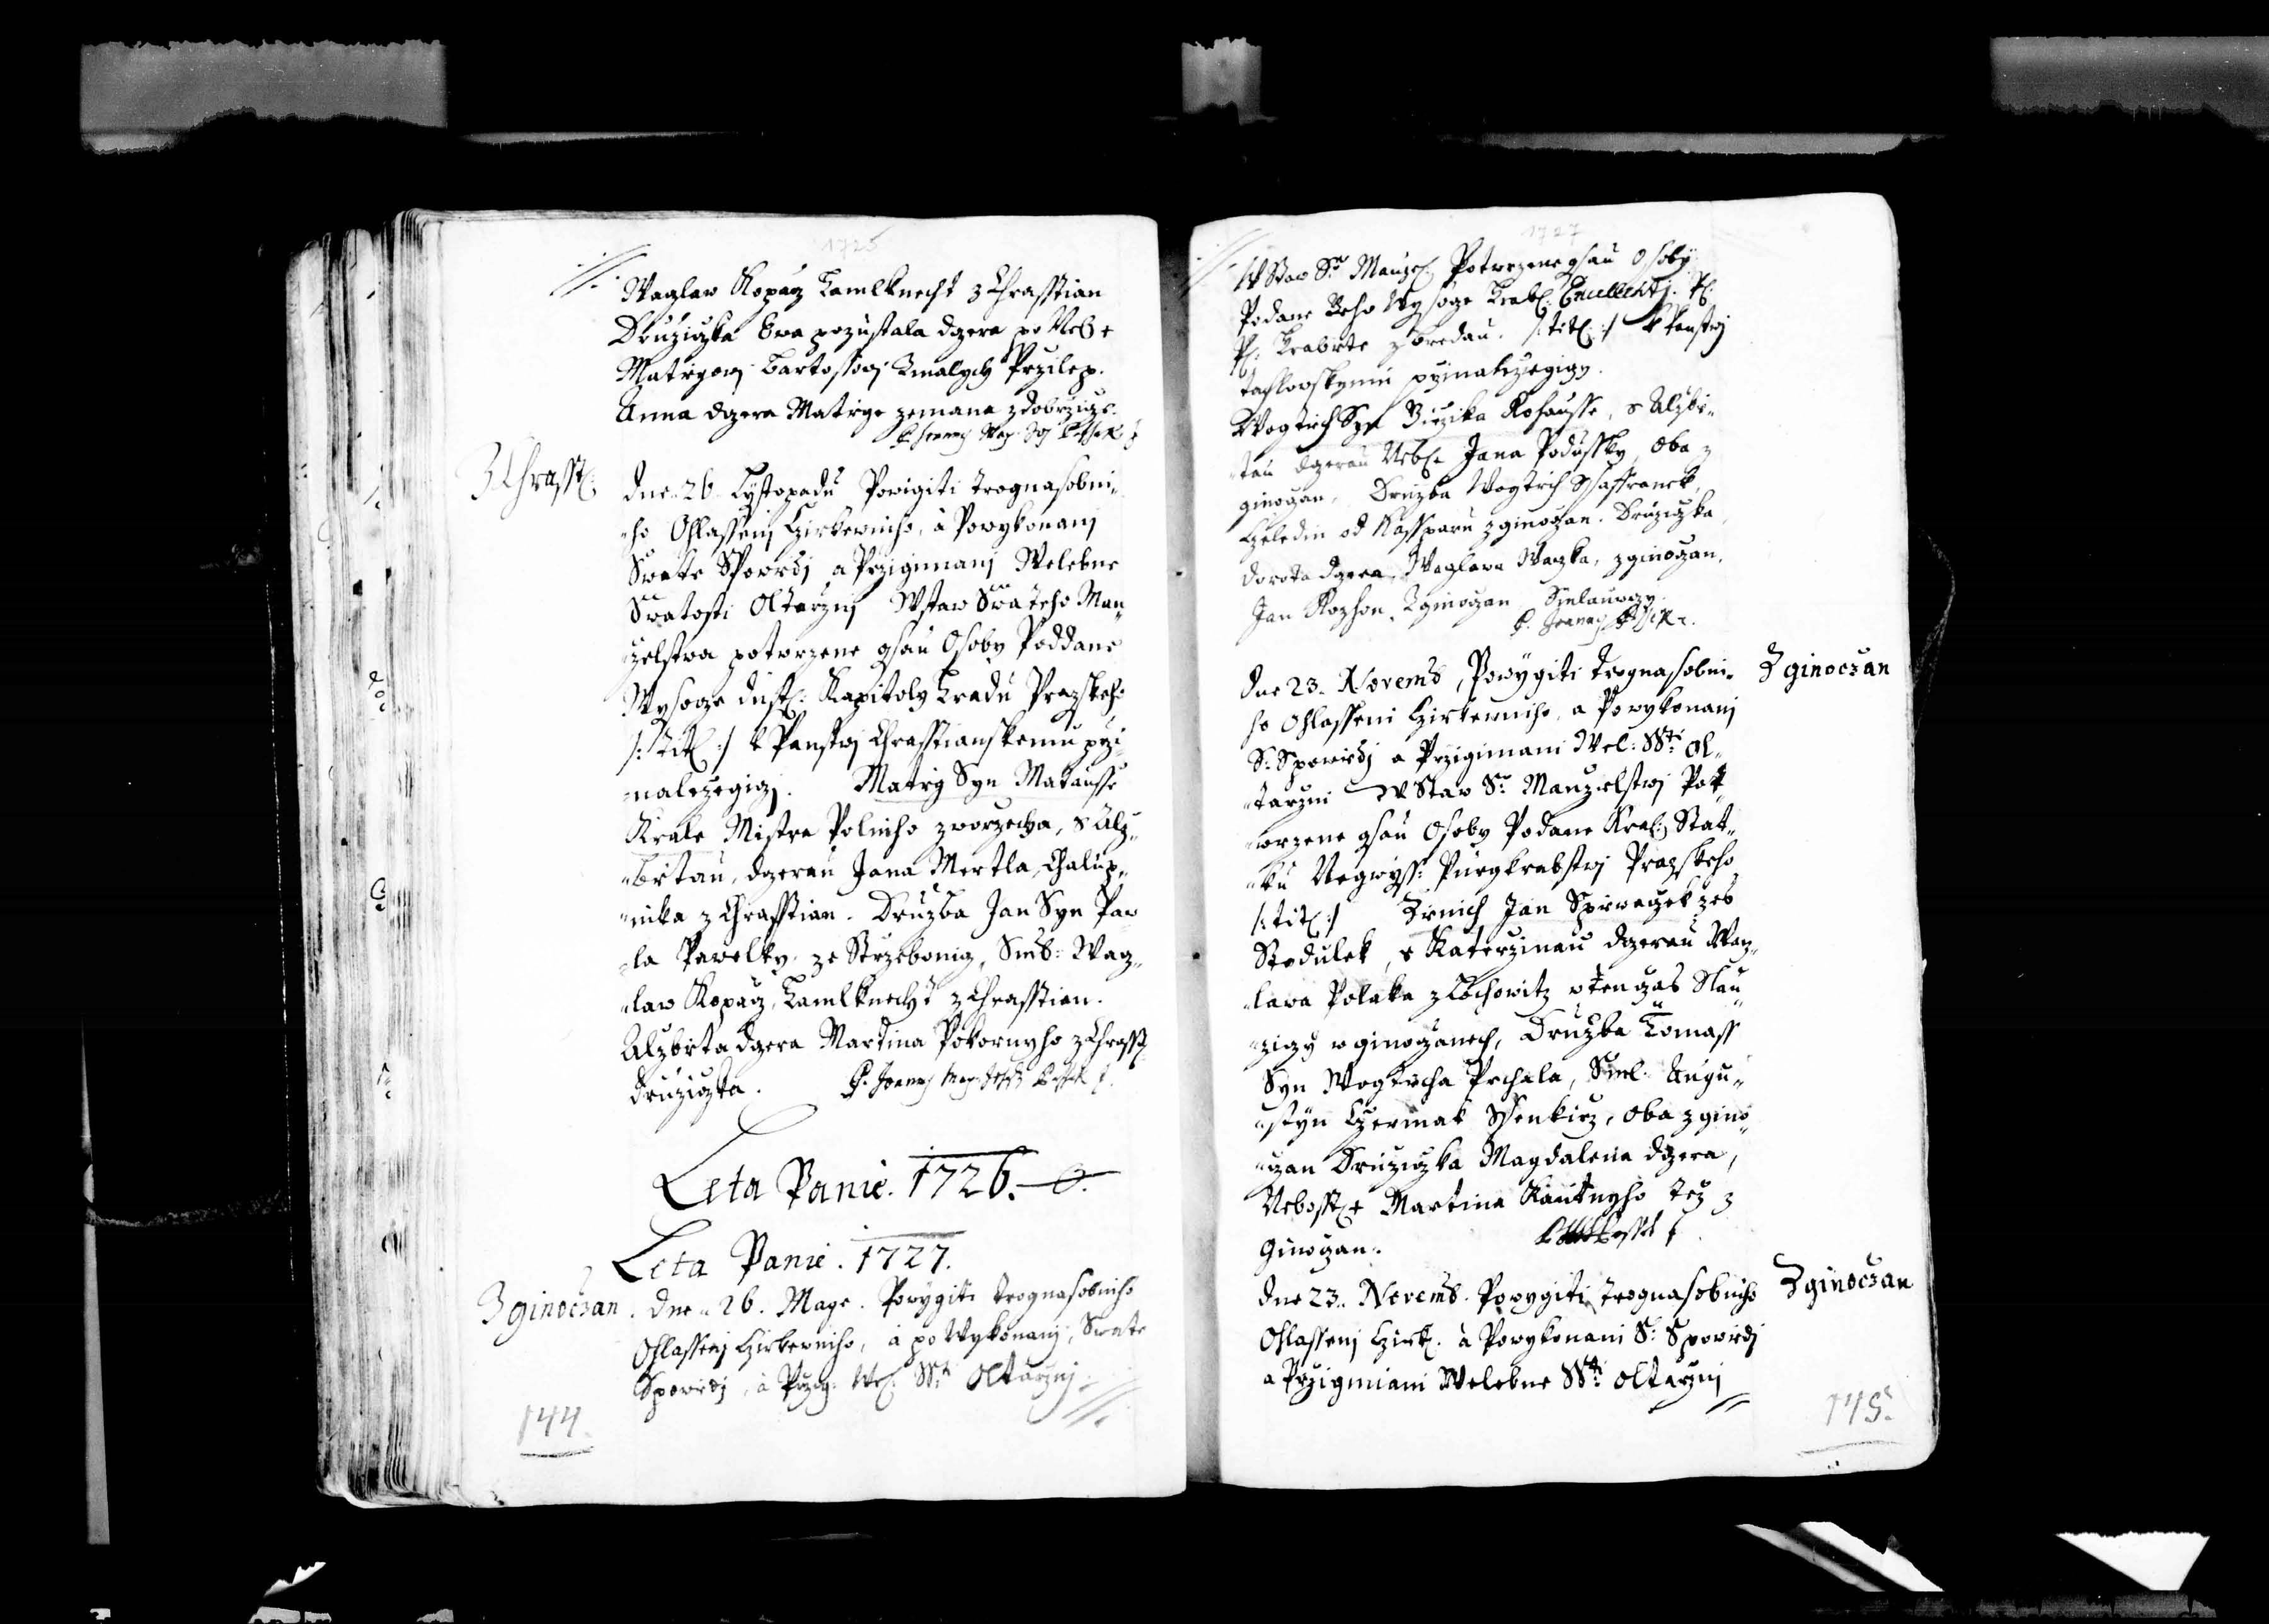 1725
Waczlaw Kopacz Lamlknecht z Chrasstian
Druziczka Eva pozustala dczera po Neb +
Matiegowj Bartossowj z malych Przilep.
Anna dczera Matiege zemana z dobrzicze.
Z Chrasst:
dne 26 Lystopadu Powigiti trognasobni-
ho Ohlassenj Czirkewniho, à Powykonanj
Swate Spowidj a Przigimanj Welebne
Swatosti Oltarznj Wstaw Swateho Man-
zelstwa potwrzene gsau Osoby Poddane
Wysocze dust: Kapitoly hradu Prazskeho
/: Tit: :/ k Panstwj Chrasstianskemu przi-
nalezegiczj. Matieg Syn Matausse
Krale Mistra Polniho z worzecha, s Alz-
bietau, dczerau Jana Mertla, Chalup-
nika z Chrasstian. Druzba Jan Syn Paw
la Pawelky ze Strzebonicz, Swied: Wacz-
law Kopacz, Lamlknecht z Chrasstian.
Alzbieta dczera Martina Pokorneho z Chrasst:
druziczka.
Leta Panie. 1726. — 0.
Leta Panie. 1727.
Z ginoczan. dne 26. Maye. Powygiti trognasobniho
Ohlassenj Czirkewniho, à po Wykonanj, Swate
Spowidj, à Przig: Wel: Sti Oltarznj
144.
1727
W Staw St. Manzel: Potwrzene gsau Osoby
Podane Geho Wysocze hrab: Excellentj. Pl:
Pl: hrabiete z bredau. /: tit: :/ k Panstwj
tachlowskymu przinalezegiczy.
Wogtiech Syn Girzika Kohausse, s Alzbie-
tau dczerau Neb: Jana Podussky, oba z
ginoczan, Druzba Wogtiech Ssaffranek,
Czeledin od Kassparu z ginoczan. Druziczka
dorota dczera Waczlawa Waczka, z ginoczan.
Jan Kozhon, z ginoczan
dne 23. Novemb, Powygiti trognasobni- Z ginoczan
ho Ohlasseni Czirkewniho, a Powykonanj
S: Spowidj a Przigimani Wel: Sti Ol-
tarzni W Staw St. Manzelstwj Pot-
wrzene gsau Osoby Podane Kral: Stat-
ku Negwyss: Purgkrabstwj Prazskeho
/: tit: :/ Zenich Jan Spiewaczek zeb
Stodulek, s Katerzinau dczerau Wacz-
lawa Polaka z Lochowitz w ten czas Slau-
ziczy w ginoczanech, Druzba Tomass
Syn Wogtiecha Prchala, Swiel: Augu-
styn Czermak Ssenkirz, oba z gino
czan Druziczka Magdalena dczera,
Nebosst + Martina Kautnyho tez z
Ginoczan.
dne 23. Novemb. Powygiti trognasobniho Z ginoczan
Ohlassenj Czirk: à Powykonani S: Spowidj
a Przigimani Welebne Sti: oltarznj
145.